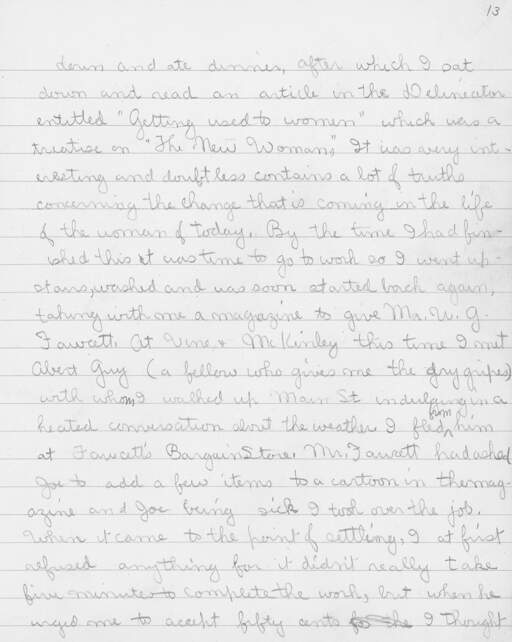 13
down and ate dinner, after which I sat
down and read an article in the Delineator
entitled "Getting used to women" which was a
treatise on "The New Woman." It was very int-
eresting and doubtless contains a lot of truths
concerning the change that is coming in the life
of the woman of today. By the time I had fin-
ished this it was time to go to work so I went up-
stairs, washed and was soon started back again,
taking with me a magazine to give Mr. W. G.
Fawcett. At Vine & McKinley this time I met
Abert Guy (a fellow who gives me the dry gripes)
with whom I walked up Main St indulging in a
heated conversation about the weather. I fled him
at Fawcett's Bargain Store. Mr. Fawcett had asked
Joe to add a few items to a cartoon in the mag-
azine and Joe being sick I took over the job.
When it came to the point of settling, I at first
refused anything for it didn't really take
five minutes to complete the work, but when he
urged me to accept fifty cents I thought